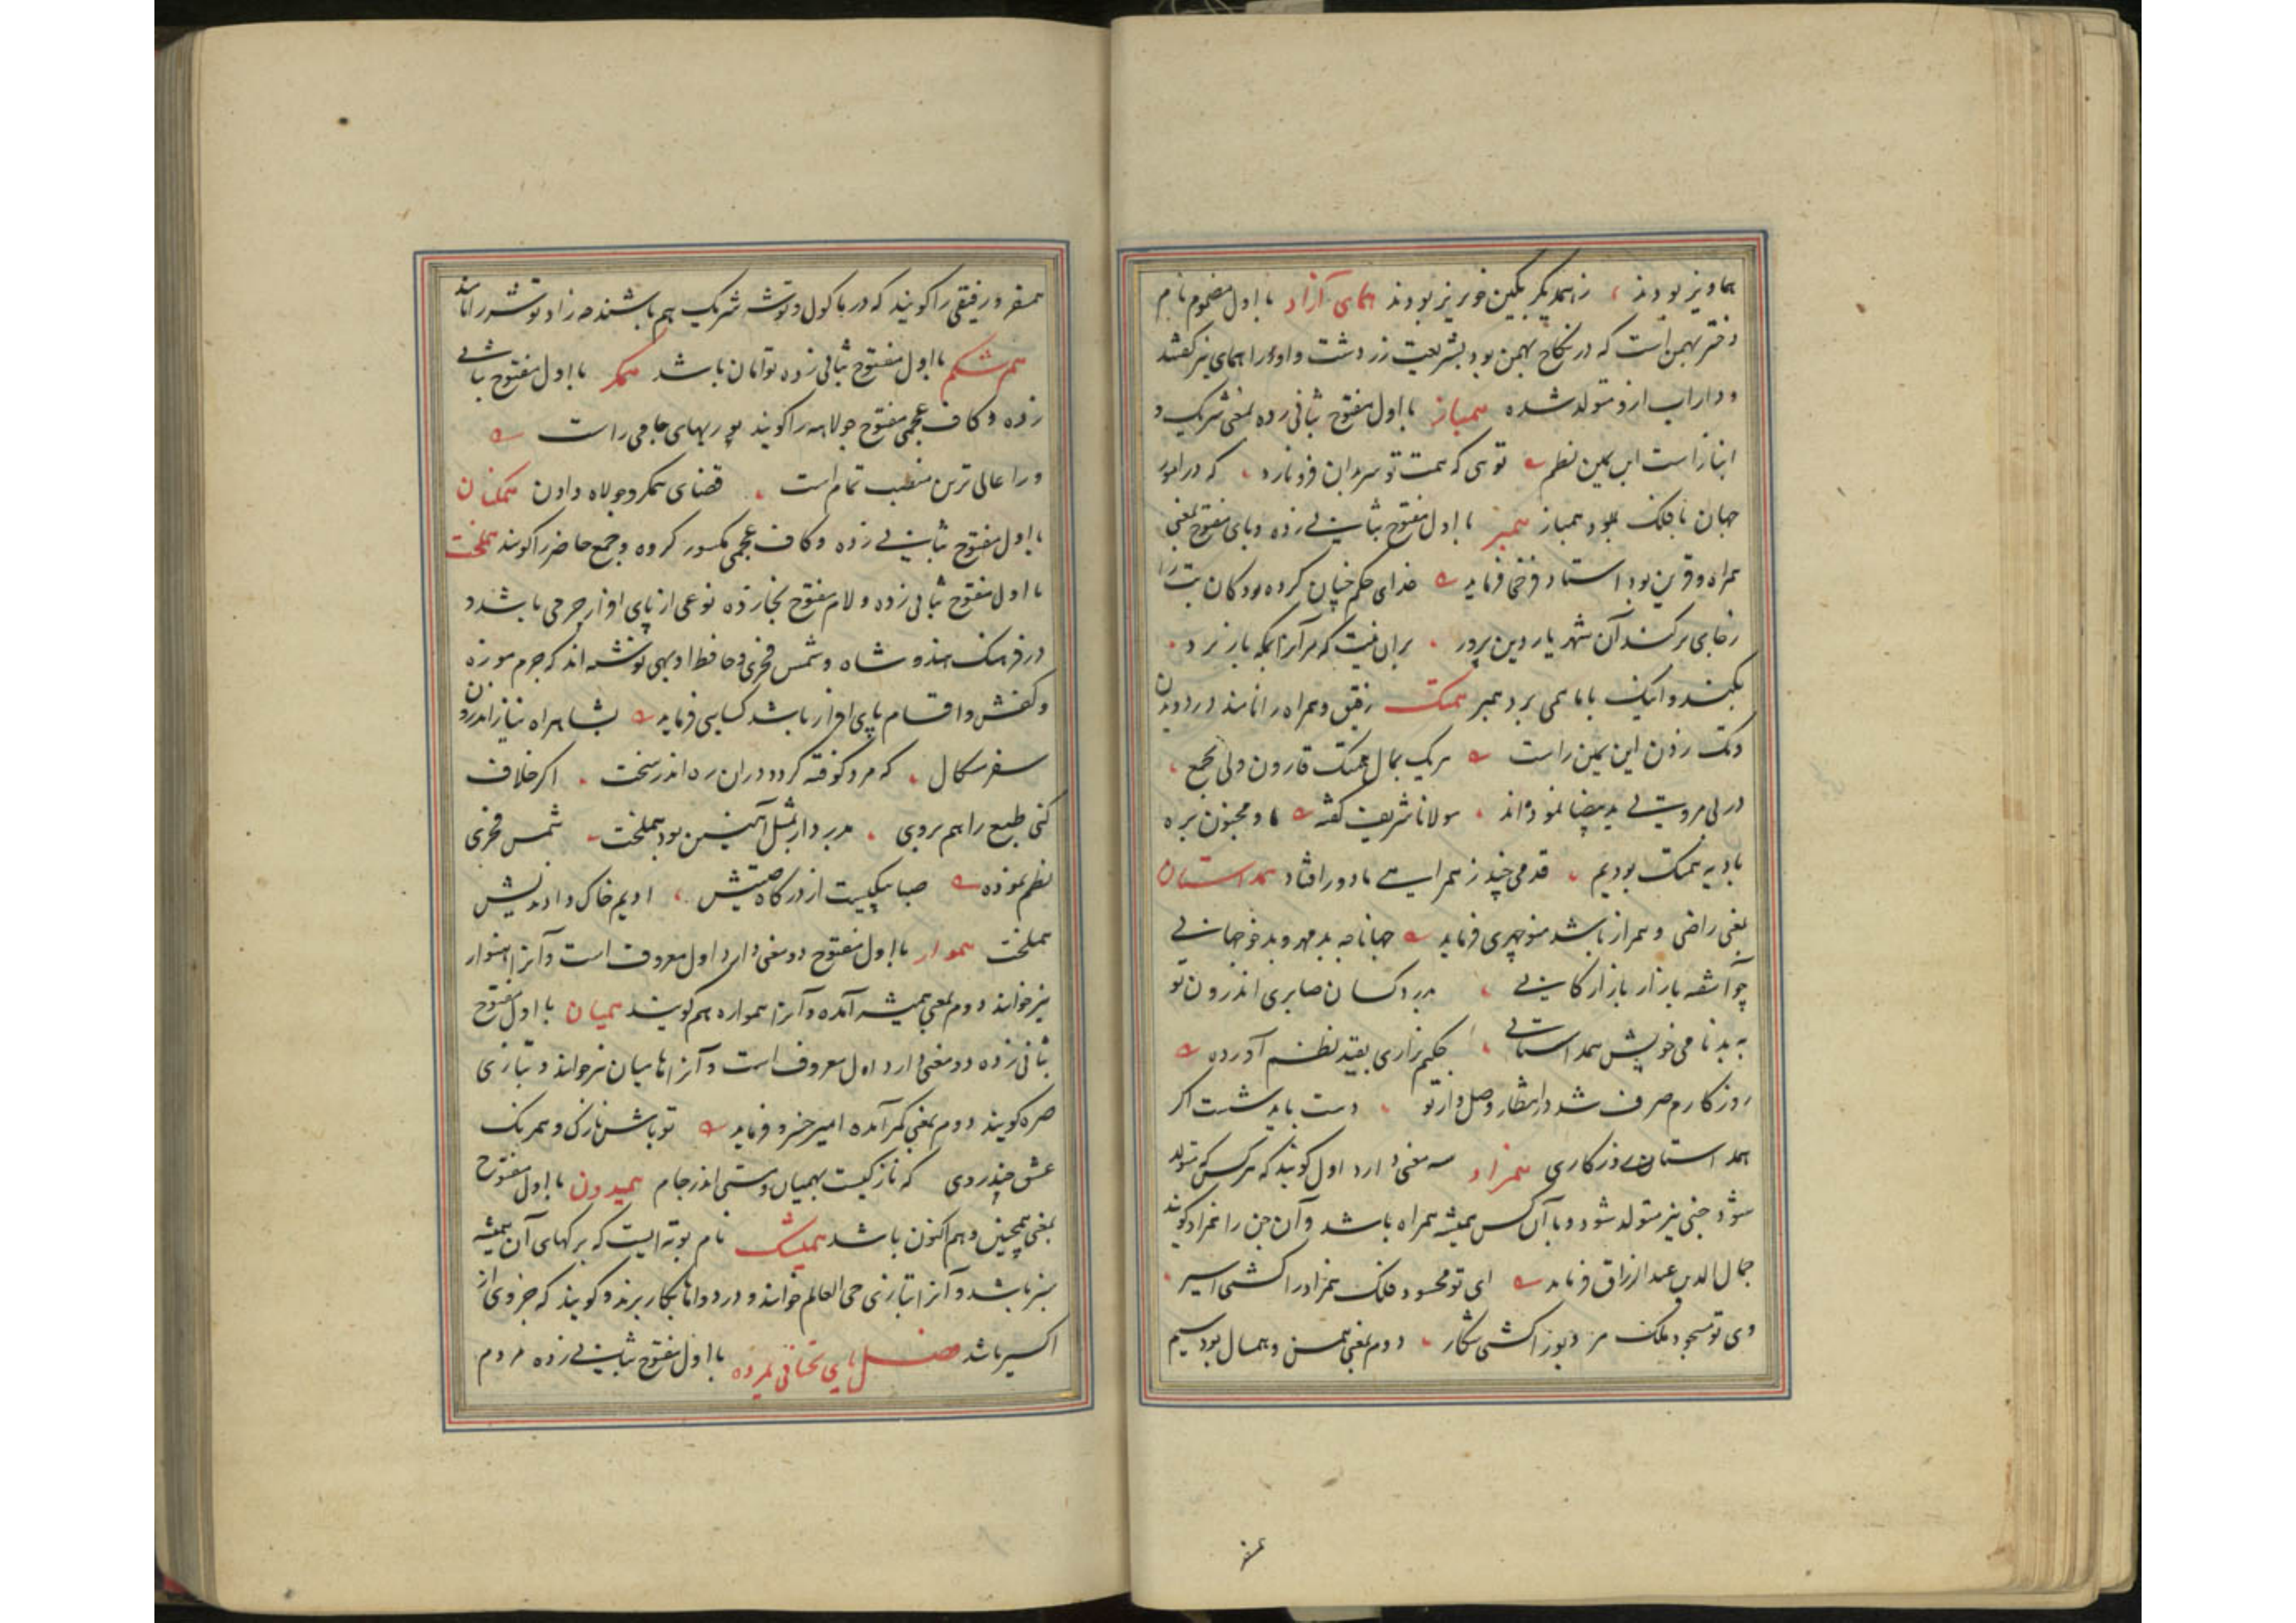 هماویز بودند ، ز همدیگر بکین خونریز بودند همای آزاد با اول مضموم نام
دختر بهمن است که در نکاح بهمن بود بشریعت زردشت و او را همای نیز گفتند
و داراب ازو متولد شده همباز با اول مفتوح بثانی زده بمعنی شریک و
انباز است ابن یمین نظم توئی که همت تو سر بدان فرو نارد ، که در امور
جهان با فلک بود همباز همبر با اول مفتوح بثانی زده و بای مفتوح بمعنی
همراه و قرین بود استاد فرخی فرماید خدای حکم چنان کرده بود کان بت را
ز جای برکند آن شهریار دین پرور ، بران نیت که مر آنرا بمکه باز برد ،
بکند و اینک با ما همی برد همبر همتک رفیق و همراه را نامند در دویدن
و تک زدن ابن یمین راست هر یک بمال همتک قارون ولی بجمع ،
در بی مروتی ید بیضا نموده‌اند ، مولانا شریف گفته ما و مجنون بره
بادیه همتک بودیم ، قدمی چند ز همراهی ما دور افتاد همداستان
بمعنی راضی و همراز باشد منوچهری فرماید جهانا چه بدمهر و بدخو جهانی
چو آشفته بازار بازارگانی ، بدرد کسان صابری اندرون تو
به بدنامی خویش همداستانی ، حکیم نزاری بقید نظم آورده
روزگارم صرف شد در انتظار وصل تو ، دست باید شست اگر
همداستان روزگاری همزاد سه معنی دارد اول گویند که هرکس که متولد
شود جنی نیز متولد شود و با آن کس همیشه همراه باشد و آن جن را همزاد گویند
جمال الدین عبدالرزاق فرماید ای تو محسود فلک همزاد را کشتی اسیر ،
وی تو مسجود ملک مر دیو را کشتی شکار ، دوم بمعنی همسن و همسال بود سیم
همسفر
همسفر و رفیقی را گویند که در ماکول و توشه شریک هم باشند چه زاد توشه را نامند
هم شکم با اول مفتوح بثانی زده توامان باشد همگر با اول مفتوح بثانی
زده و کاف عجمی مفتوح جولاهه را گویند پور بهای جامی راست
ورا عالی ترین منصب تمام است ، قضای همگر و جولاه دادن همگنان
با اول مفتوح بثانی زده و کاف عجمی مکسور گروه و جمع حاضر را گویند هملخت
با اول مفتوح بثانی زده و لام مفتوح بخا زده نوعی از پای افزار چرمی باشد و
در فرهنگ هندوشاه و شمس فخری و حافظ اوبهی نوشته‌اند که چرم موزه
و کفش و اقسام پای افزار باشد کسایی فرماید بشاهراه نیاز اندرون
سفر مسگال ، که مرد کوفته گردد دران ره اندر سخت ، اگر خلاف
کنی طبع را هم بروی ، بدرد ار بمثل آهنین بود هملخت شمس فخری
نظم نموده صبا پیکیست از درگاه حبش ، ادیم خاک دادندیش
هملخت هموار با اول مفتوح دو معنی دارد اول معروف است و آنرا هنوار
نیز خوانند دوم بمعنی همیشه آمده و آنرا همواره هم گویند همیان با اول مفتوح
بثانی زده دو معنی دارد اول معروف است و آنرا هامیان نیز خوانند و بتازی
صره گویند دوم بمعنی کمر آمده امیر خسرو فرماید تو باش نازک و همرنگ
عشق چند روی که نازکیست بهمیان و سستی اندر جام همیدون با اول مفتوح
بمعنی همچنین و هم اکنون باشد همیشک نام بوته ایست که برگهای آن همیشه
سبز باشد و آنرا بتازی حی العالم خوانند و در دواها بکار برند و گویند که جزوی از
اکسیر باشد فصل یای تحتانی نمرده با اول مفتوح بثانی زده مردم